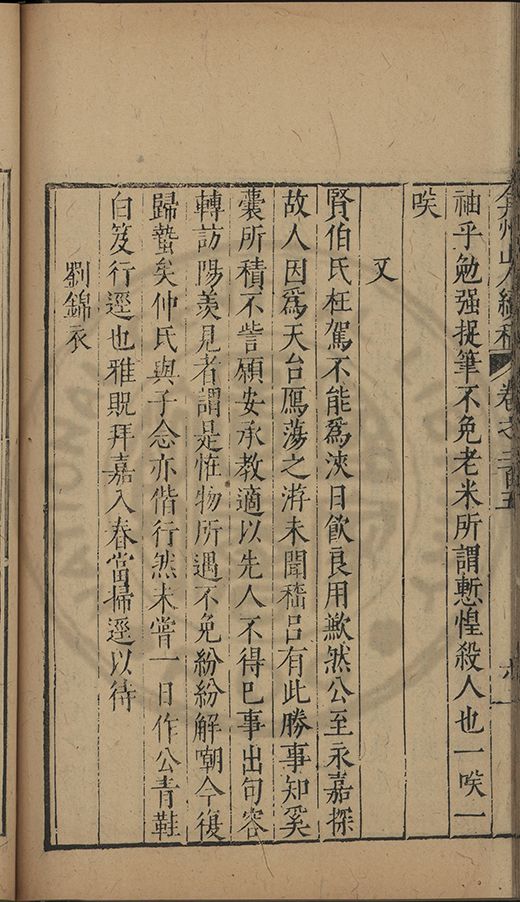 弇州山人續稿 卷之二百五 六
袖乎勉强捉筆不免老米所謂慙惶殺人也一唉一
唉
又
賢伯氏枉駕不能爲浹日飲良用歉然公至永嘉探
故人因爲天台鴈蕩之游未聞嵇吕有此勝事知奚
囊所積不訾願安承教適以先人不得已事出句容
轉訪陽羨見者謂是恠物所遇不免紛紛解嘲今復
歸蟄矣仲氏與子念亦偕行然未嘗一日作公青鞋
白笈行逕也雅貺拜嘉入春當掃逕以待
劉錦衣